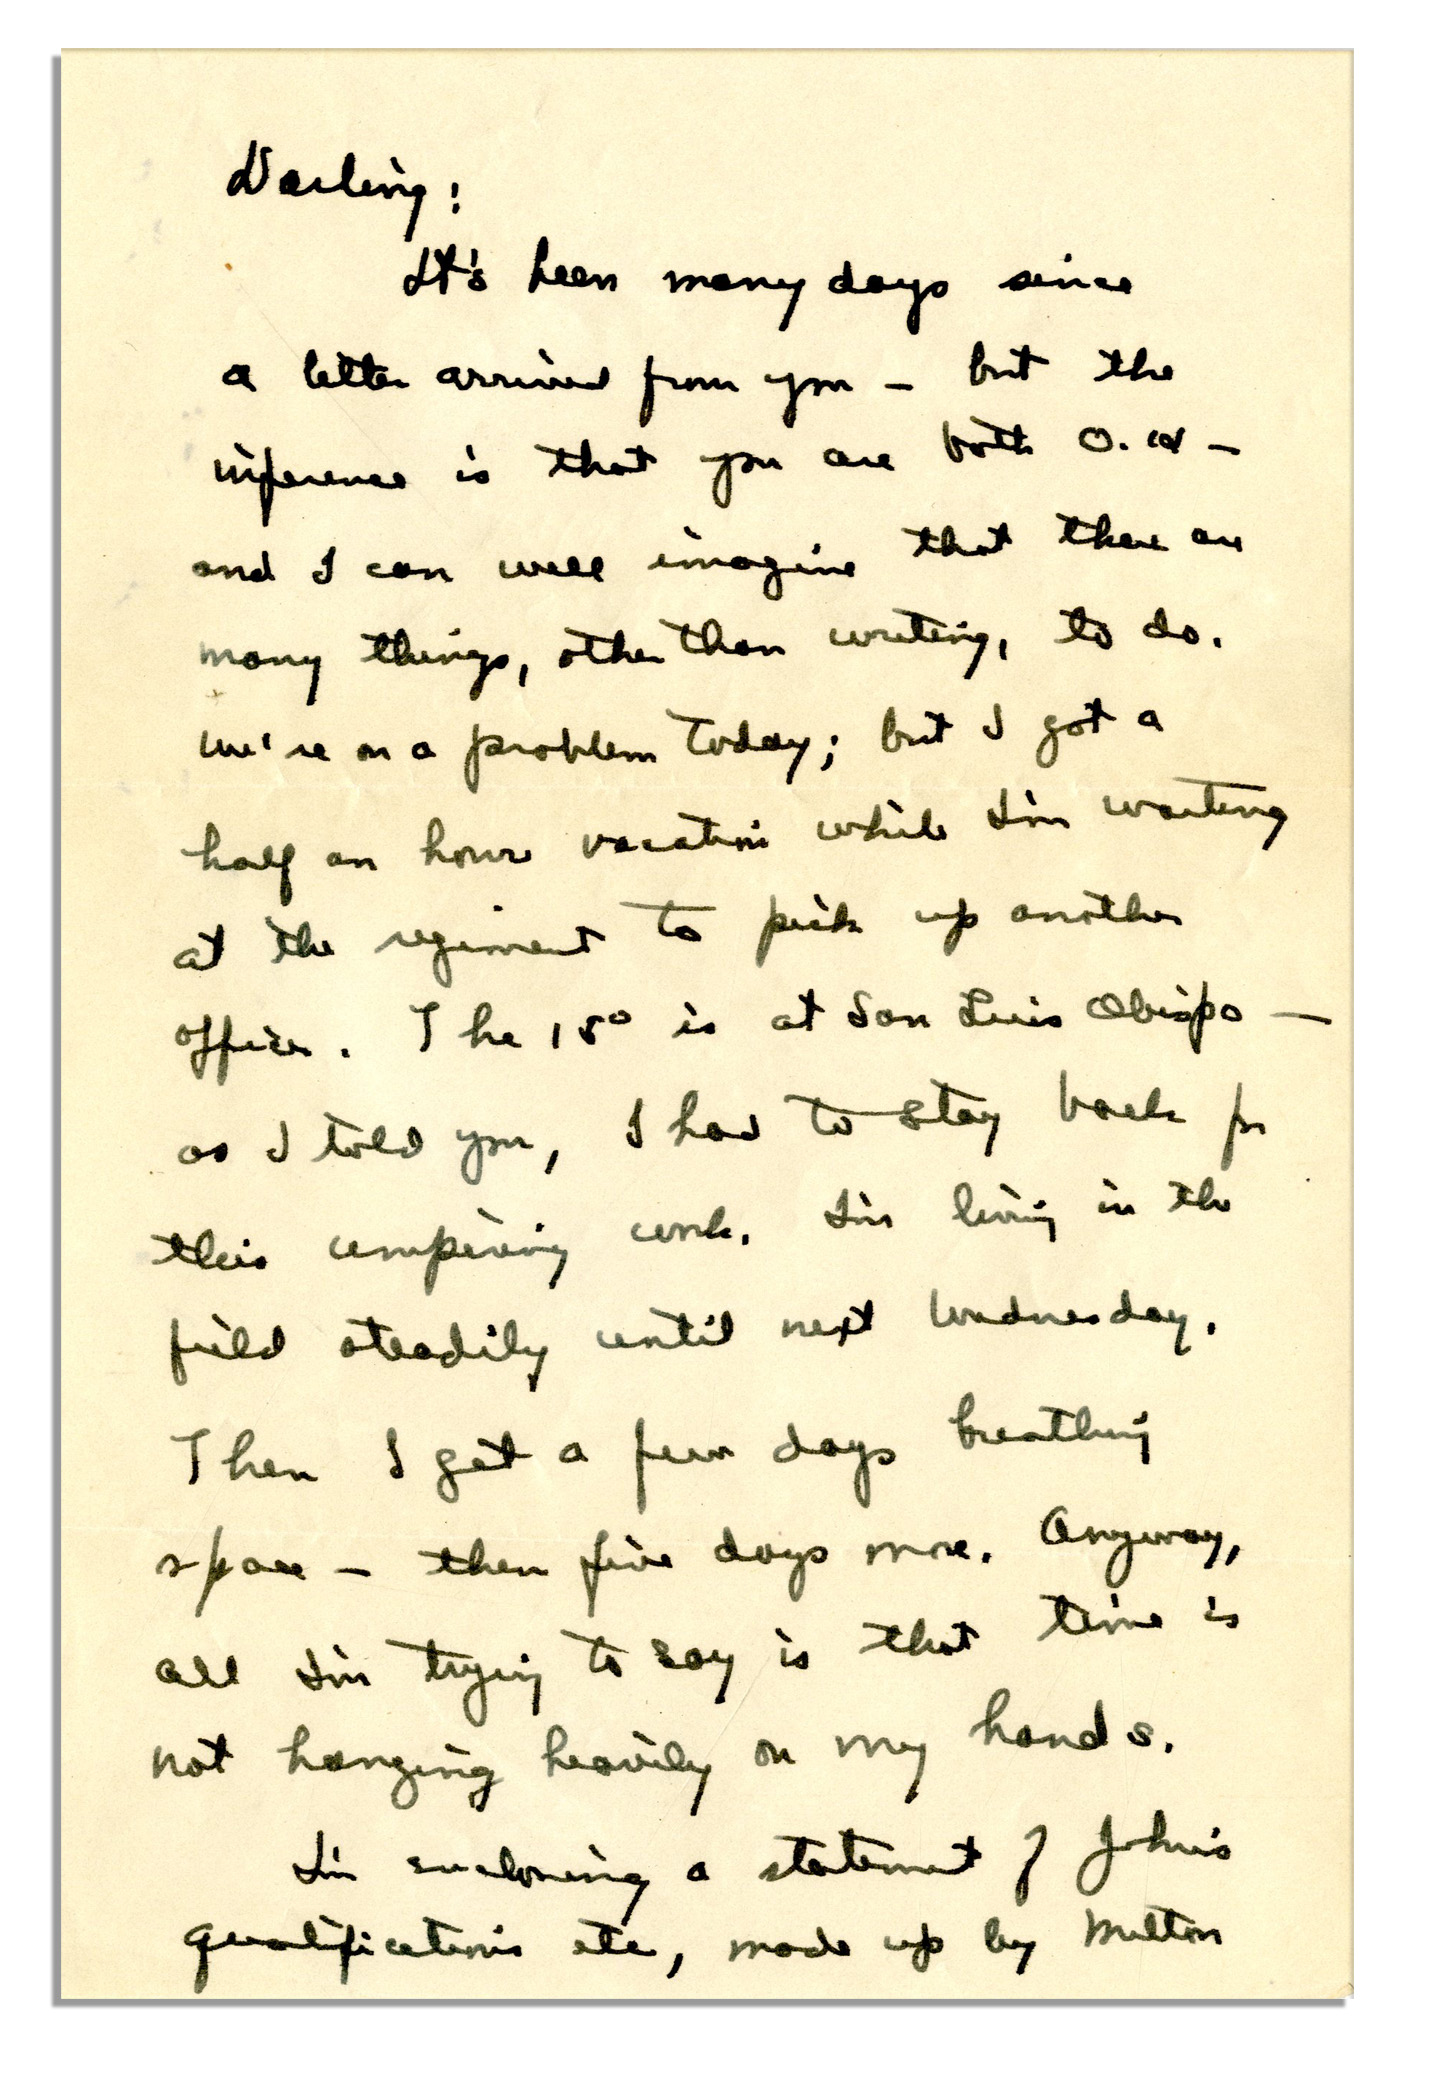 Darling:
It's been many days since
a letter arrived from you – but the
inference is that you are both O.K –
and I can well imagine that there are
many things, other than writing, to do.
We're on a problem today; but I got a
half an hours vacation while I'm waiting
at the regiment to pick up another
officer. The 15º is at San Luis Obispo –
as I told you, I had to stay back for
this umpiring work. I'm living in the
field steadily until next Wednesday.
Then I get a few days breathing
space – then five days more. Anyway,
all I'm trying to say is that time is
not hanging heavily on my hands.
I'm enclosing a statement of John's
qualifications etc, made up by Milton